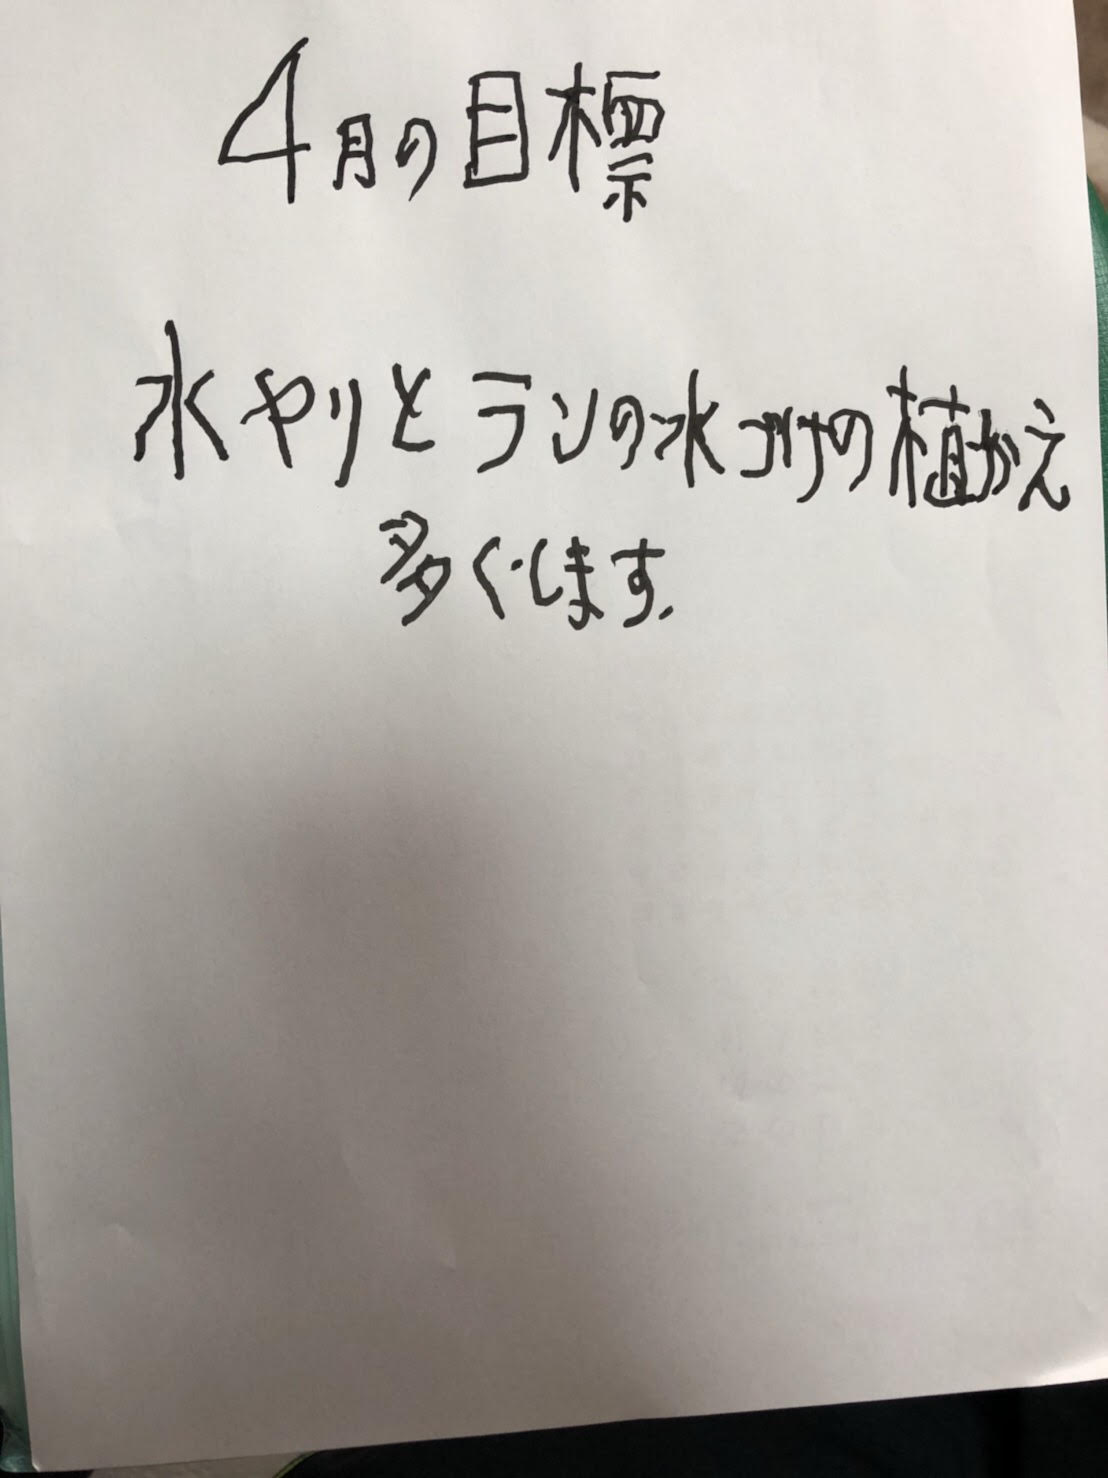 4月の目標
水やりとランの水づけの植かえ
多くします.